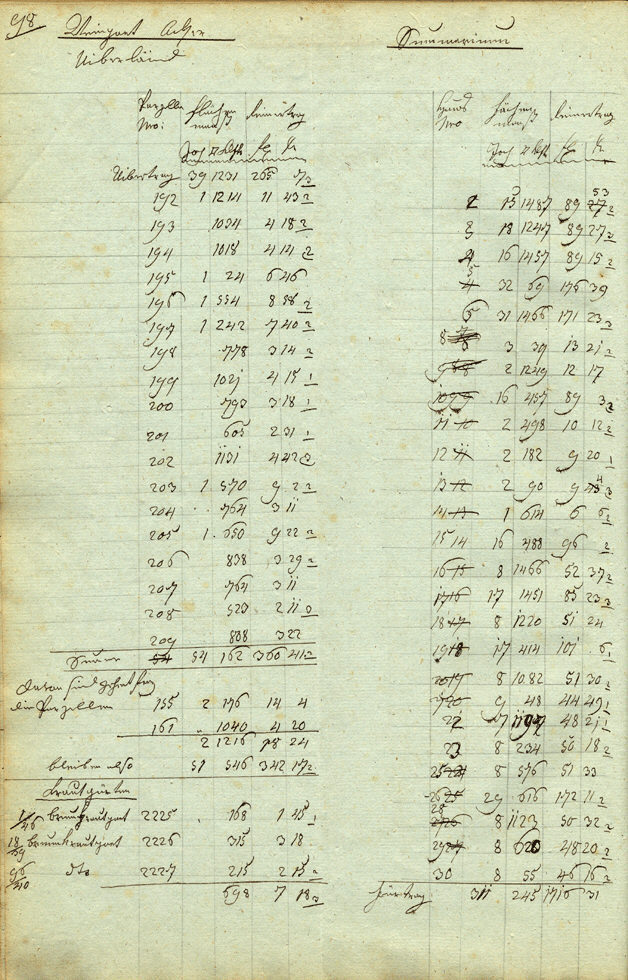 98
Weingart Acker
Uiberländ
Parzelle Flächen Reinertrag
Nro: maaß
Joch □Klft fl kr
Uibertrag 39 1231 265 5 3
192 1 1214 11 43 2
193 1034 4 18 2
194 1018 4 14 2
195 1 24 6 46
196 1 554 8 58 2
197 1 242 7 40 2
198 778 3 14 2
199 1021 4 15 1
200 793 3 18 1
201 605 2 31 1
202 1131 4 42 3
203 1 570 9 2 2
204 764 3 11
205 1 350 9 22 2
206 838 3 29 2
207 764 3 11
208 523 2 11 3
209 808 3 22
Summe 54 162 360 41 2
die Parzellen 155 2 176 14 4
161 1040 4 20
2 1216 18 24
bleiben also 51 546 342 17 2
Krautgärten
1/46 Brennkrautgart 2225 168 1 45 1
18/69 Brennkrautgart 2226 315 3 18
96/210 dto 2227 215 2 15 2
698 7 18 3
Summarium
Haus Flächen Reinertrag
Nro maaß
Joch □Klft fl kr
2 15 1487 89 53 2
3 18 1247 89 27 3
4 16 1457 89 15 2
5 32 69 176 39
6 31 1466 171 23 3
8 3 39 13 21 2
9 2 1249 12 17
10 16 457 89 3 2
11 2 498 10 12 2
12 2 182 9 20 1
13 2 90 9 4 3
14 1 614 6 6 2
15 16 488 96 2
16 8 1466 52 37 2
17 17 1451 85 23 3
18 8 1220 51 24
19 17 414 101 6 1
20 8 1082 51 30 2
9 48 44 49 1
22 7 1197 48 21 1
23 8 234 50 18 2
25 8 576 51 33
26 29 616 172 11 2
28 8 1123 50 32 2
29 8 620 48 20 2
30 8 55 46 16 2
Fürtrag 311 245 1716 31